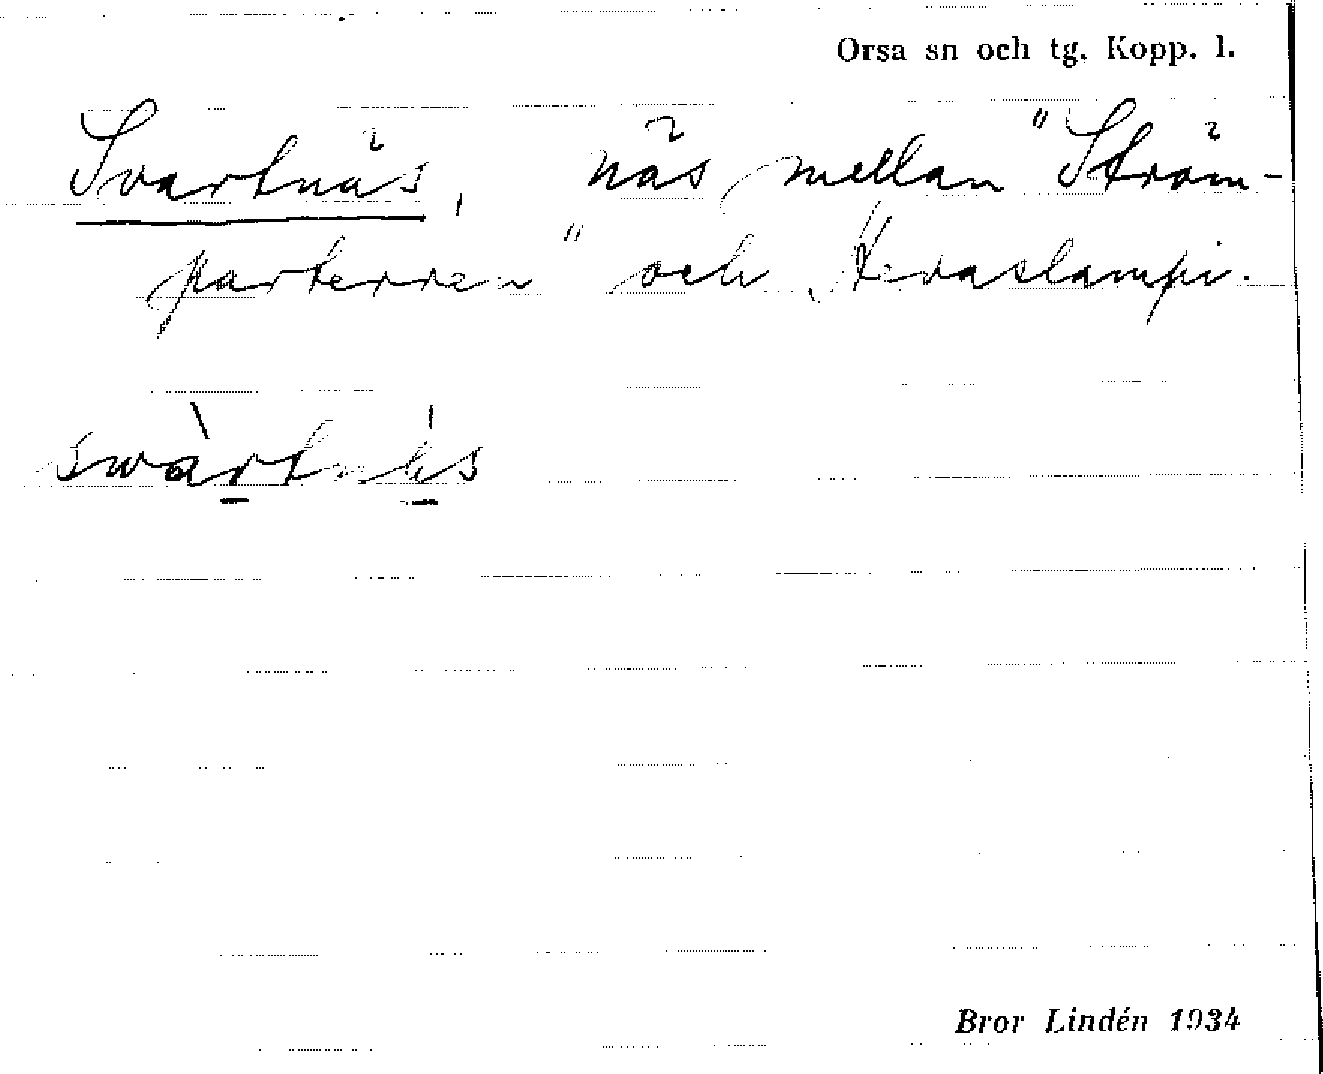 Orsa sn och tg. Kopp. l.
Svartnäs, näs mellan "Ström-
parterren" och Kevaslampi.
swàrtnés
Bror Lindén 1934